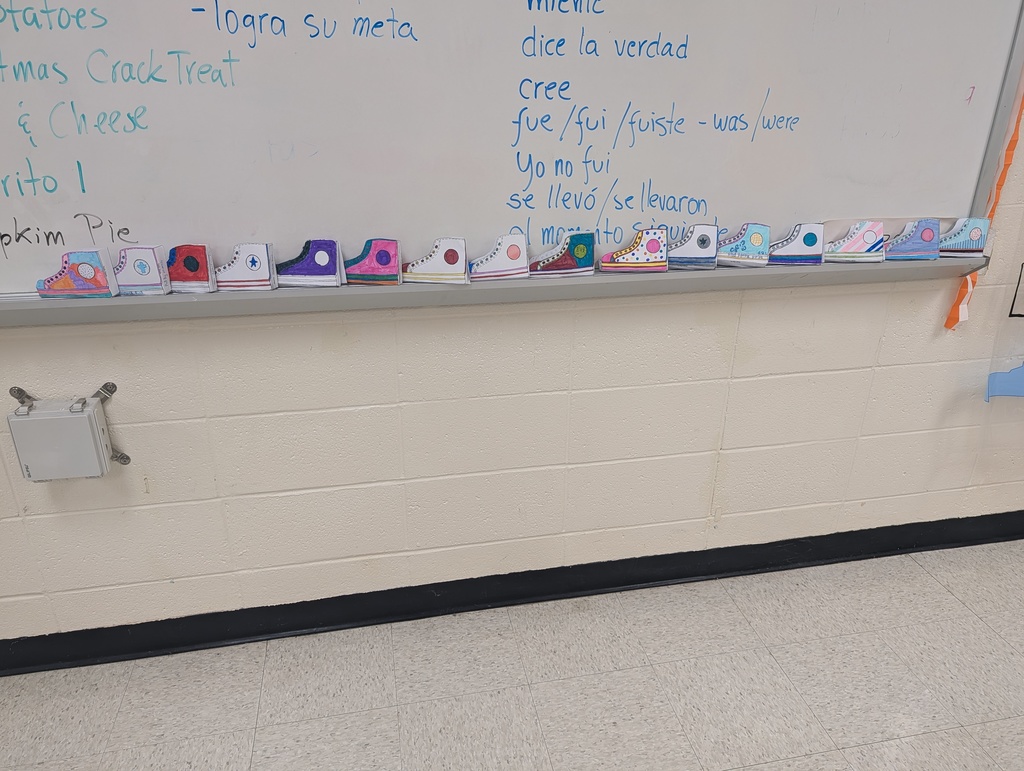 otatoes
tmas Crack Treat
& Cheese
rito 1
pkim Pie
-logra su meta
miente
dice la verdad
cree
fue/fui/fuiste - was/were
Yo no fui
se llevó/se llevaron
al momento siguiente